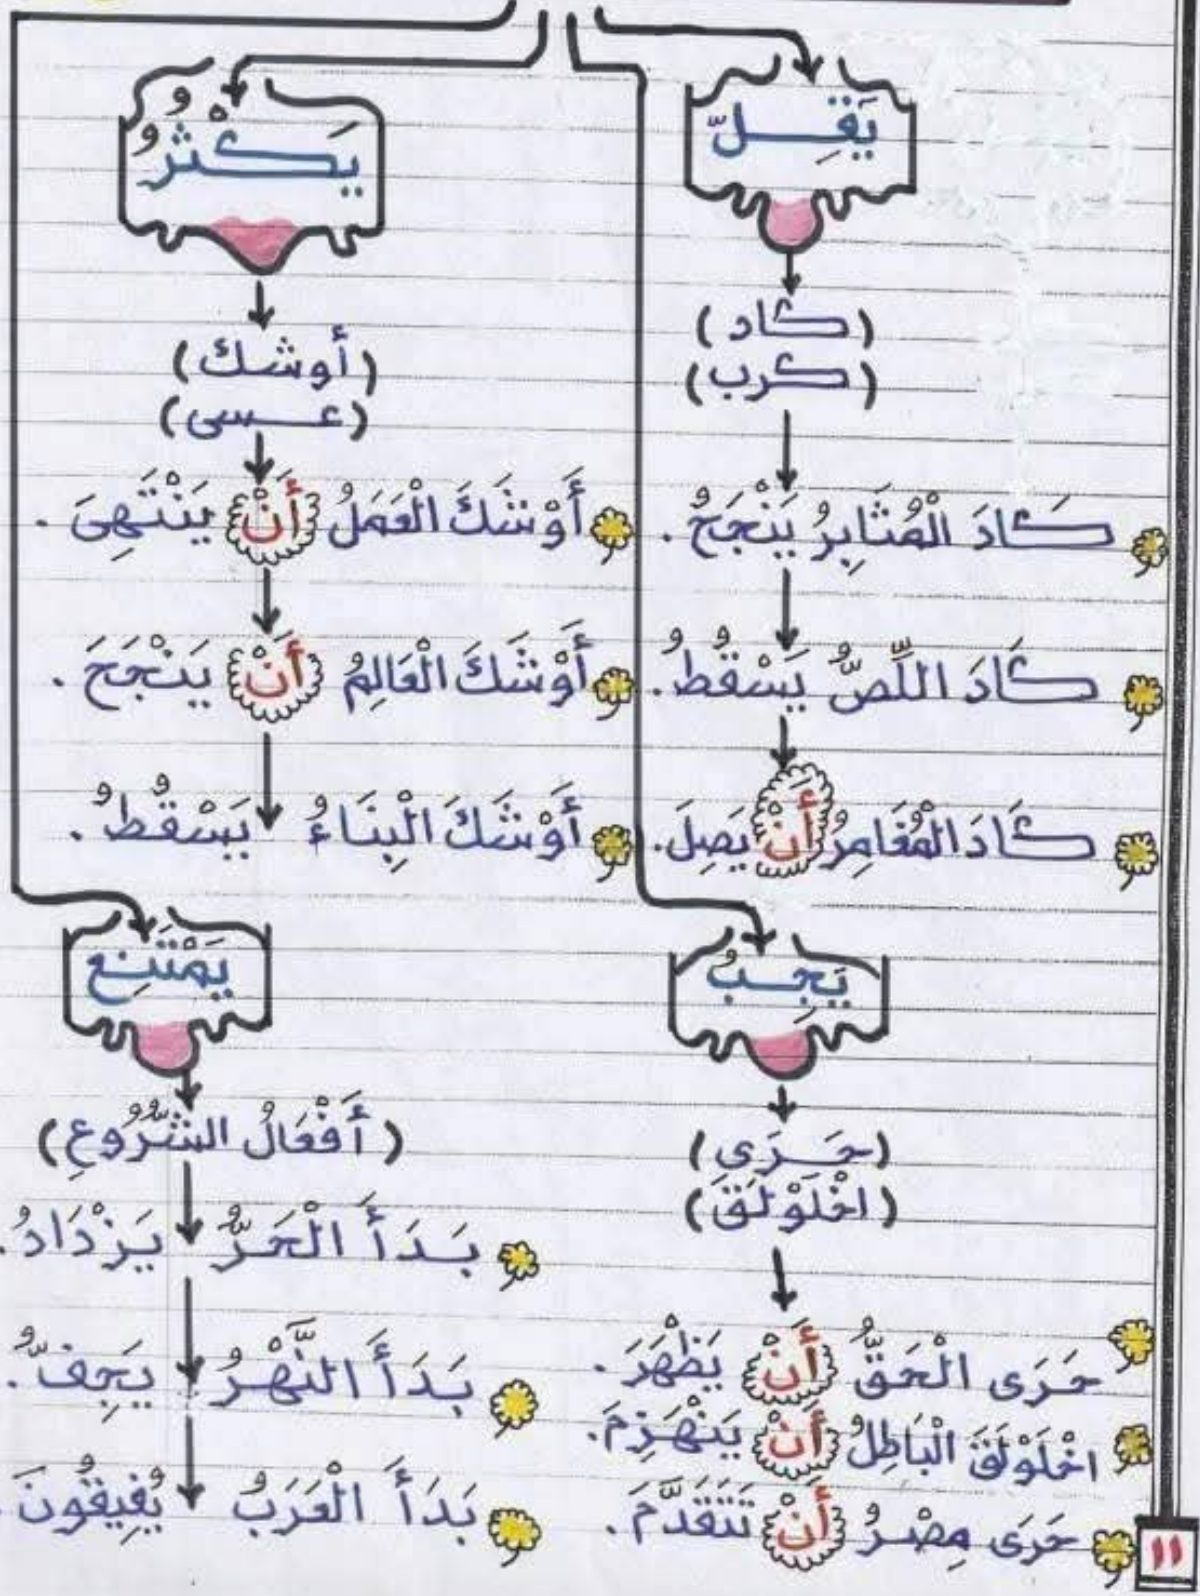 يَقِلّ
(كاد)
(كرب)
كَادَ الْمُثَابِرُ يَنْجَحُ.
كَادَ اللِّصُّ يَسْقُطُ.
كَادَ الْمُغَامِرُ أَنْ يَصِلَ.
يَكْثُرُ
(أوشك)
(عسى)
أَوْشَكَ الْعَمَلُ أَنْ يَنْتَهِىَ.
أَوْشَكَ الْعَالِمُ أَنْ يَنْجَحَ.
أَوْشَكَ الْبِنَاءُ يَسْقُطُ.
يَجِبُ
(حَرَى)
(اخْلَوْلَقَ)
حَرَى الْحَقُّ أَنْ يَظْهَرَ.
اخْلَوْلَقَ الْبَاطِلُ أَنْ يَنْهَزِمَ.
حَرَى مِصْرُ أَنْ تَتَقَدَّمَ.
يَمْتَنِع
(أَفْعَالُ الشُّرُوعِ)
بَدَأَ الْحَرُّ يَزْدَادُ.
بَدَأَ النَّهْرُ يَجِفُّ.
بَدَأَ الْعَرَبُ يُفِيقُونَ.
١١